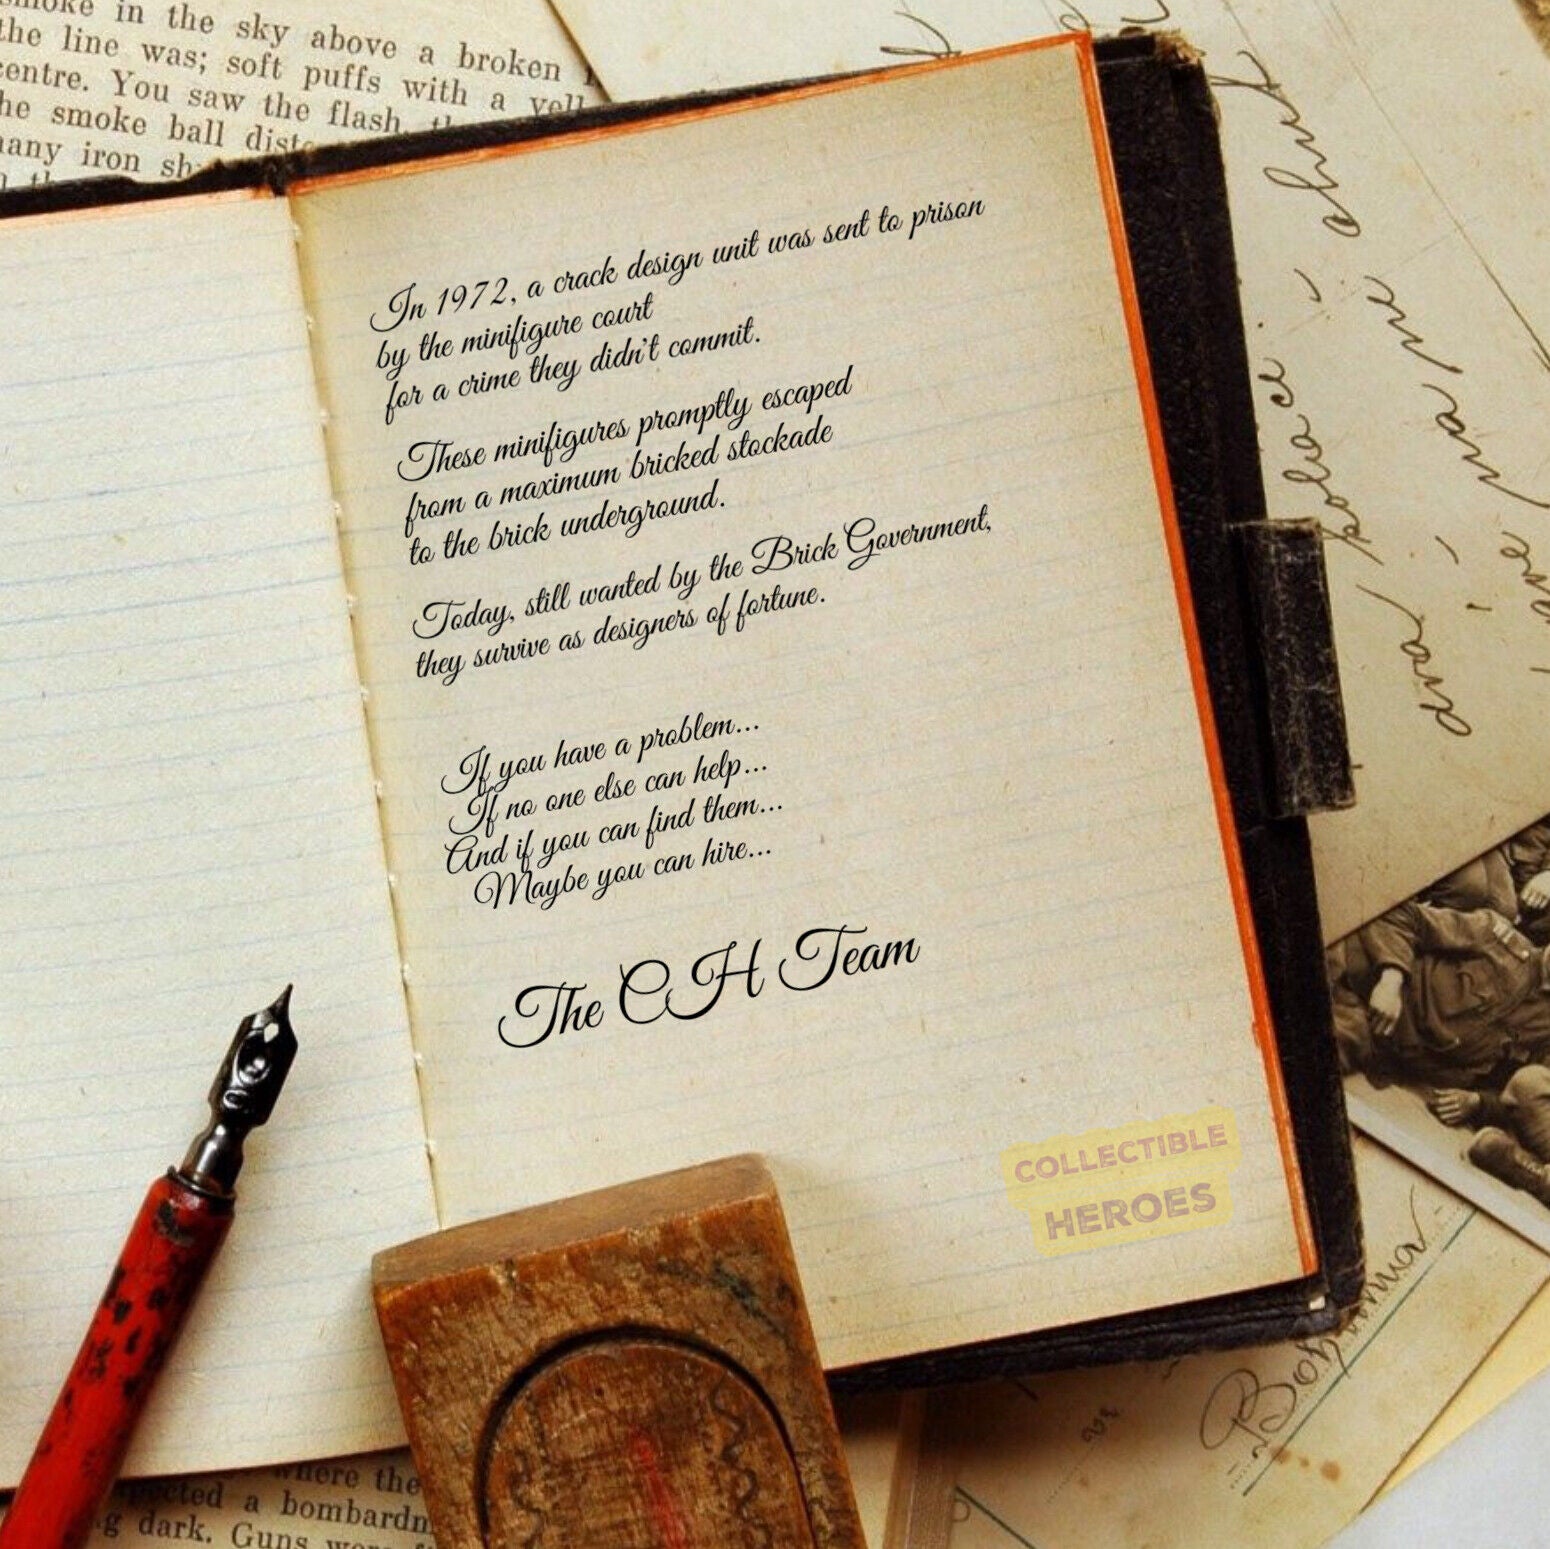 smoke in the sky above a broken
the line was; soft puffs with a yell
centre. You saw the flash,
he smoke ball dist
many iron sh
In 1972, a crack design unit was sent to prison
by the minifigure court
for a crime they didn't commit.
These minifigures promptly escaped
from a maximum bricked stockade
to the brick underground.
Today, still wanted by the Brick Government,
they survive as designers of fortune.
If you have a problem...
If no one else can help...
And if you can find them...
Maybe you can hire...
The CH Team
COLLECTIBLE
HEROES
where the
pected a bombardm
g dark. Guns wer